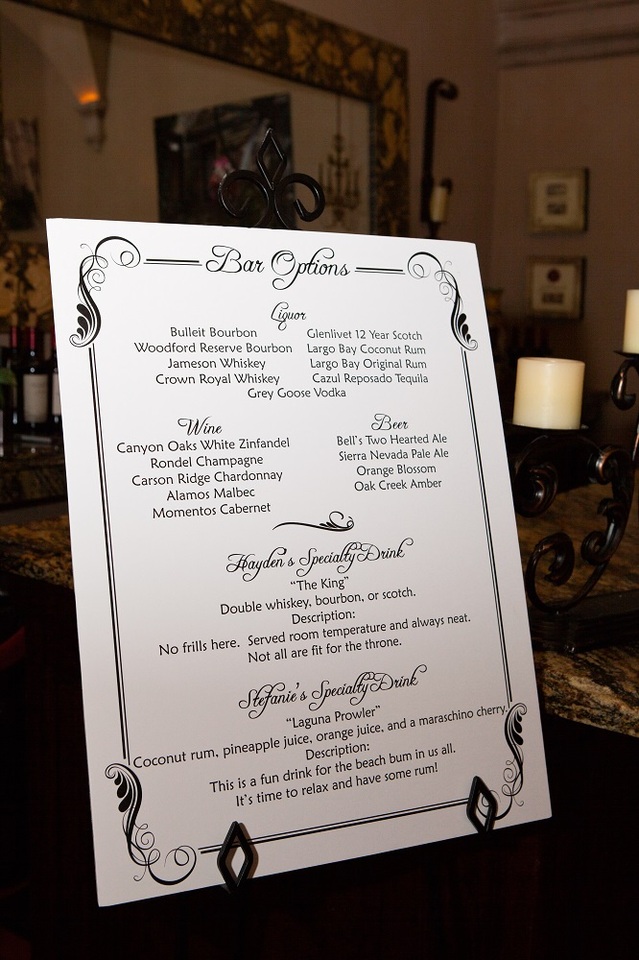 Bar Options
Liquor
Bulleit Bourbon
Woodford Reserve Bourbon
Jameson Whiskey
Crown Royal Whiskey
Glenlivet 12 Year Scotch
Largo Bay Coconut Rum
Largo Bay Original Rum
Cazul Reposado Tequila
Grey Goose Vodka
Wine
Canyon Oaks White Zinfandel
Rondel Champagne
Carson Ridge Chardonnay
Alamos Malbec
Momentos Cabernet
Beer
Bell's Two Hearted Ale
Sierra Nevada Pale Ale
Orange Blossom
Oak Creek Amber
Hayden's Specialty Drink
"The King"
Double whiskey, bourbon, or scotch.
Description:
No frills here. Served room temperature and always neat.
Not all are fit for the throne.
Stefanie's Specialty Drink
"Laguna Prowler"
Coconut rum, pineapple juice, orange juice, and a maraschino cherry.
Description:
This is a fun drink for the beach bum in us all.
It's time to relax and have some rum!